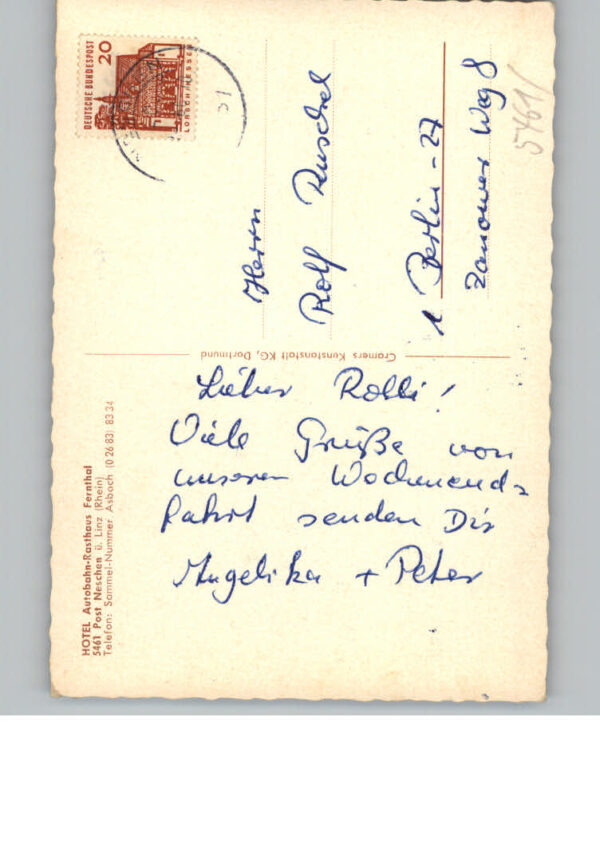 DEUTSCHE BUNDESPOST
20
LORSCH/HESSEN
Herrn
Rolf Ruschel
1 Berlin-27
Zanower Weg 8
5461/
Cramers Kunstanstalt KG, Dortmund
Lieber Rolli!
Viele Grüße von
unseren Wochenend-
fahrt senden Dir
Angelika + Peter
HOTEL Autobahn-Rasthaus Fernthal
5461 Post Neschen ü. Linz (Rhein)
Telefon: Sammel-Nummer Asbach (0 26 83) 83 34